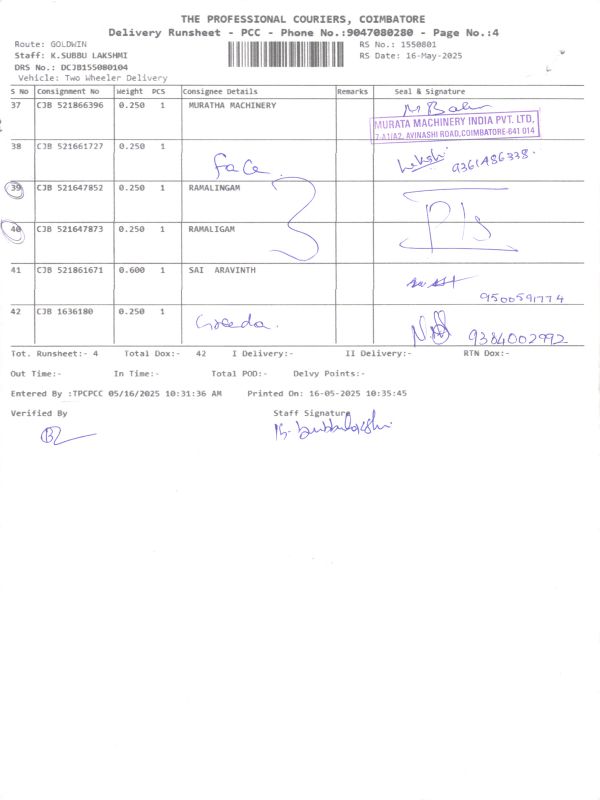 THE PROFESSIONAL COURIERS, COIMBATORE
Delivery Runsheet - PCC - Phone No.:9047080280 - Page No.:4
Route: GOLDWIN RS No.: 1550801
Staff: K.SUBBU LAKSHMI RS Date: 16-May-2025
DRS No.: DCJB155080104
Vehicle: Two Wheeler Delivery
S No Consignment No Weight PCS Consignee Details Remarks Seal & Signature
37 CJB 521866396 0.250 1 MURATHA MACHINERY
MURATA MACHINERY INDIA PVT. LTD,
7-A1/A2, AVINASHI ROAD,COIMBATORE-641 014
38 CJB 521661727 0.250 1 face. 9361486338.
39 CJB 521647852 0.250 1 RAMALINGAM
40 CJB 521647873 0.250 1 RAMALIGAM
41 CJB 521861671 0.600 1 SAI ARAVINTH
9500591774
42 CJB 1636180 0.250 1 9384002992
Tot. Runsheet:- 4 Total Dox:- 42 I Delivery:- II Delivery:- RTN Dox:-
Out Time:- In Time:- Total POD:- Delvy Points:-
Entered By :TPCPCC 05/16/2025 10:31:36 AM Printed On: 16-05-2025 10:35:45
Verified By Staff Signature